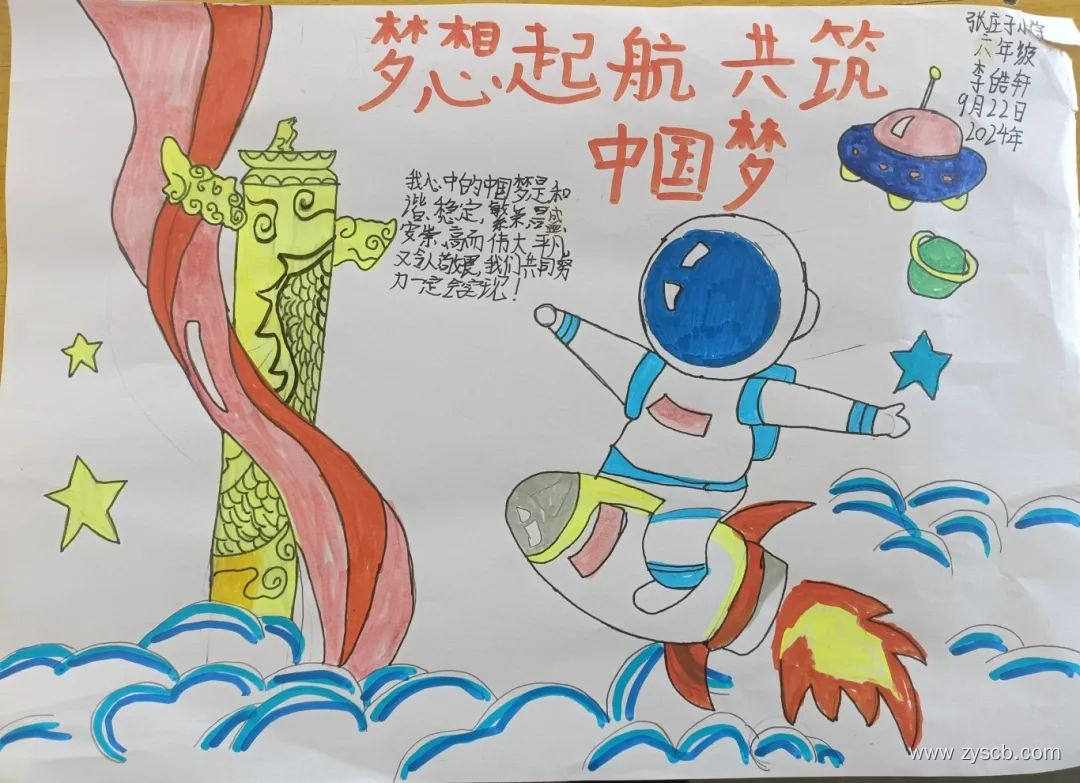 梦想起航 共筑
中国梦
张庄子小学
六年级
李皓轩
9月22日
2024年
我心中的中国梦是和
谐、稳定,繁荣昌盛
安崇、高而伟大,平凡
又令人敬畏,我们共同努
力一定会实现!
www.zyscb.com